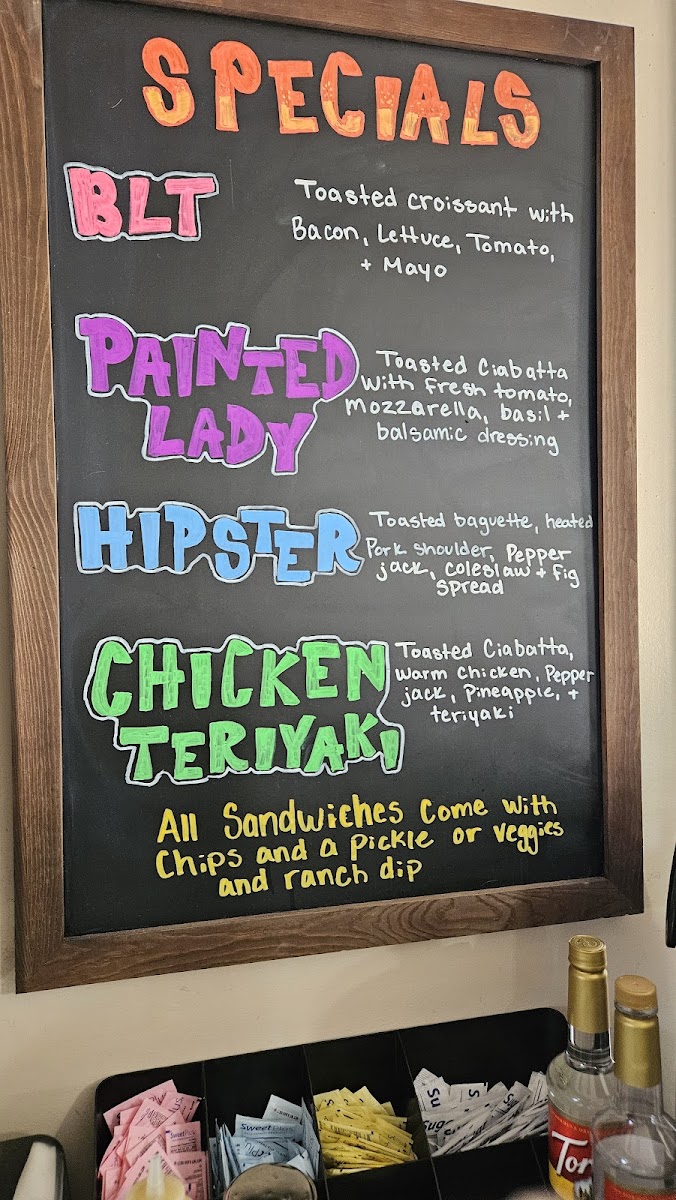 SPECIALS
BLT
Toasted croissant with
Bacon, Lettuce, Tomato,
+ Mayo
PAINTED
LADY
Toasted Ciabatta
with fresh tomato,
mozzarella, basil +
balsamic dressing
HIPSTER
Toasted baguette, heated
Pork shoulder, Pepper
jack, coleslaw + fig
spread
CHICKEN
TERIYAKI
Toasted Ciabatta,
warm chicken, Pepper
jack, Pineapple, +
teriyaki
All Sandwiches Come with
Chips and a Pickle or veggies
and ranch dip
Sweet
Su
Tor